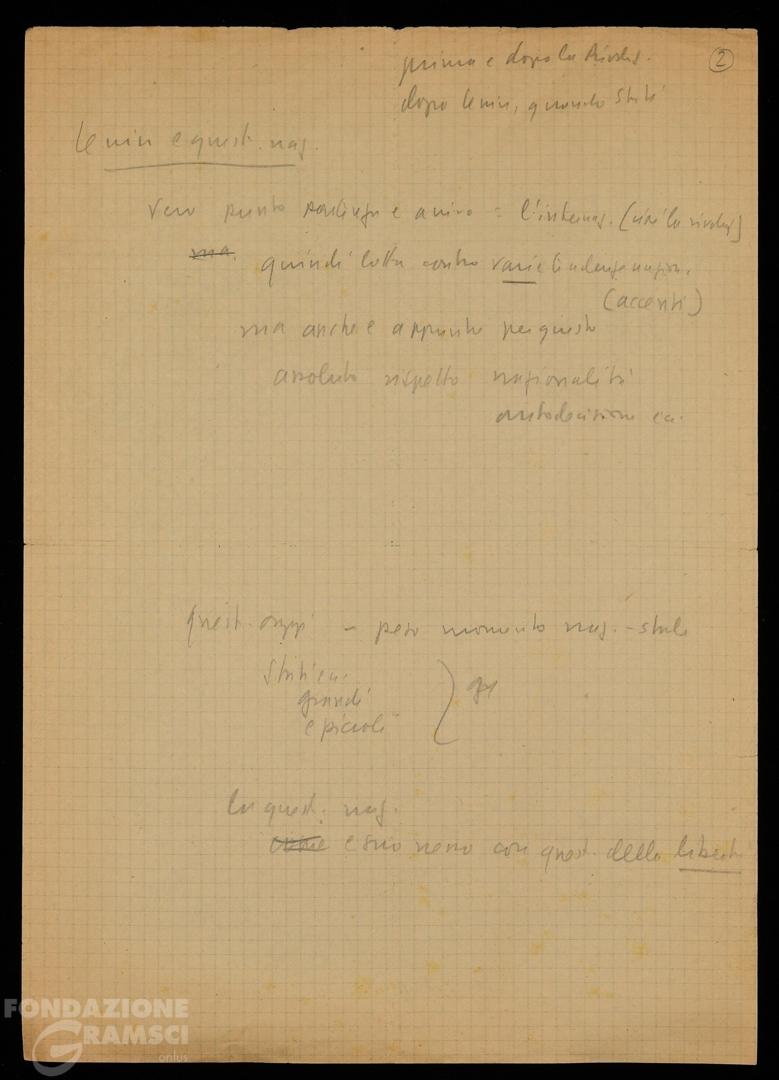 prima e dopo la Rivoluz.
2
dopo Lenin, quando Stati
Lenin e quest. naz.
Vero punto partenza e arrivo = l'internaz. (cioè la rivoluz)
ma
quindi lotta contro varie tendenze nazion.
(accenti)
ma anche e appunto per questo
assoluto rispetto nazionalità
autodecisione ecc.
Quest. oggi – peso momento naz. – statale
Stati
grandi
e piccoli
La quest. naz.
e suo nesso con quest. della libertà
FONDAZIONE
GRAMSCI
onlus